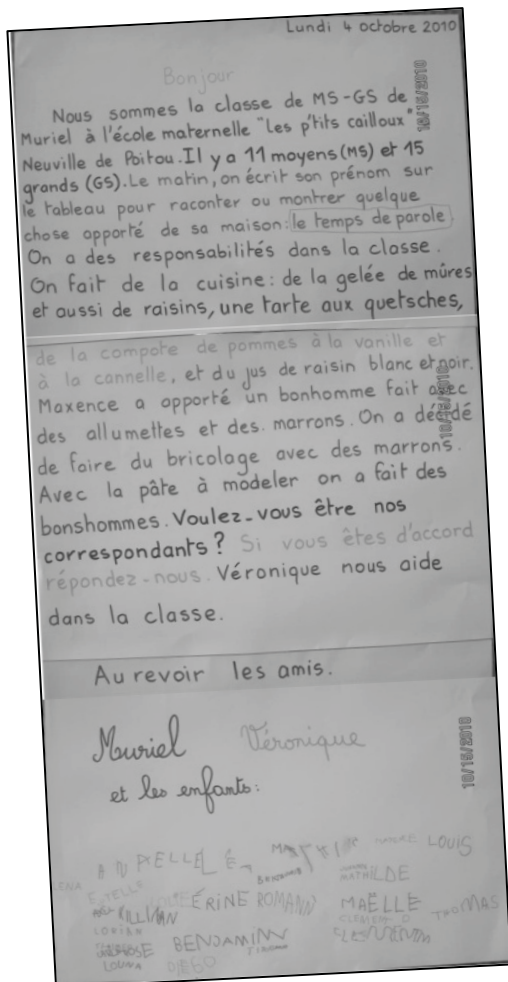 Lundi 4 octobre 2010
Bonjour
Nous sommes la classe de MS-GS de
Muriel à l'école maternelle "Les p'tits cailloux"
Neuville de Poitou. Il y a 11 moyens (MS) et 15
grands (GS). Le matin, on écrit son prénom sur
le tableau pour raconter ou montrer quelque
chose apporté de sa maison: le temps de parole
On a des responsabilités dans la classe.
On fait de la cuisine: de la gelée de mûres
et aussi de raisins, une tarte aux quetsches,
de la compote de pommes à la vanille et
à la cannelle, et du jus de raisin blanc et noir.
Maxence a apporté un bonhomme fait avec
des allumettes et des marrons. On a décidé
de faire du bricolage avec des marrons.
Avec la pâte à modeler on a fait des
bonshommes. Voulez-vous être nos
correspondants? Si vous êtes d'accord
répondez-nous. Véronique nous aide
dans la classe.
Au revoir les amis.
Muriel Véronique
10/15/2010
et les enfants:
LOUIS
MATHILDE
LENA ESTELLE
ÉRINE ROMANN MAËLLE THOMAS
KILLIAN CLEMENT D
LORIAN
BENJAMIN
LOUNA DIEGO